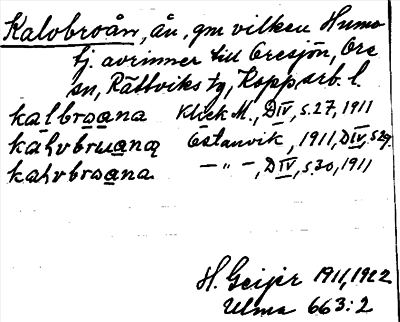 Kalvbroån, ån, gm vilken Humo
tj. avrinner till Oresjön, Ore
sn, Rättviks tg, Kopparb. l.
kalbroana Klick M., DIV, s. 27, 1911
kahvbruana Östanvik, 1911, DIV, s 29.
kahvbroana — " —, DIV, s. 30, 1911
H. Geijer 1911, 1922
Ulma 663:2